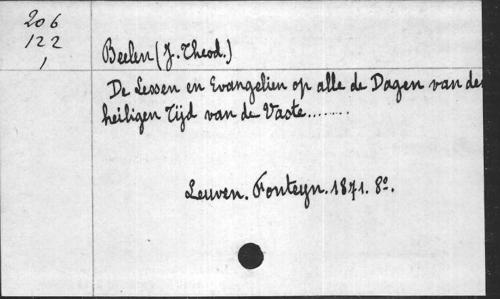 206
122
1
Beelen (J. Theod.)
De Lessen en Evangelien op alle de Dagen van de
heiligen Tijd van de Vaste.........
Leuven. Fonteyn. 1871. 8º.